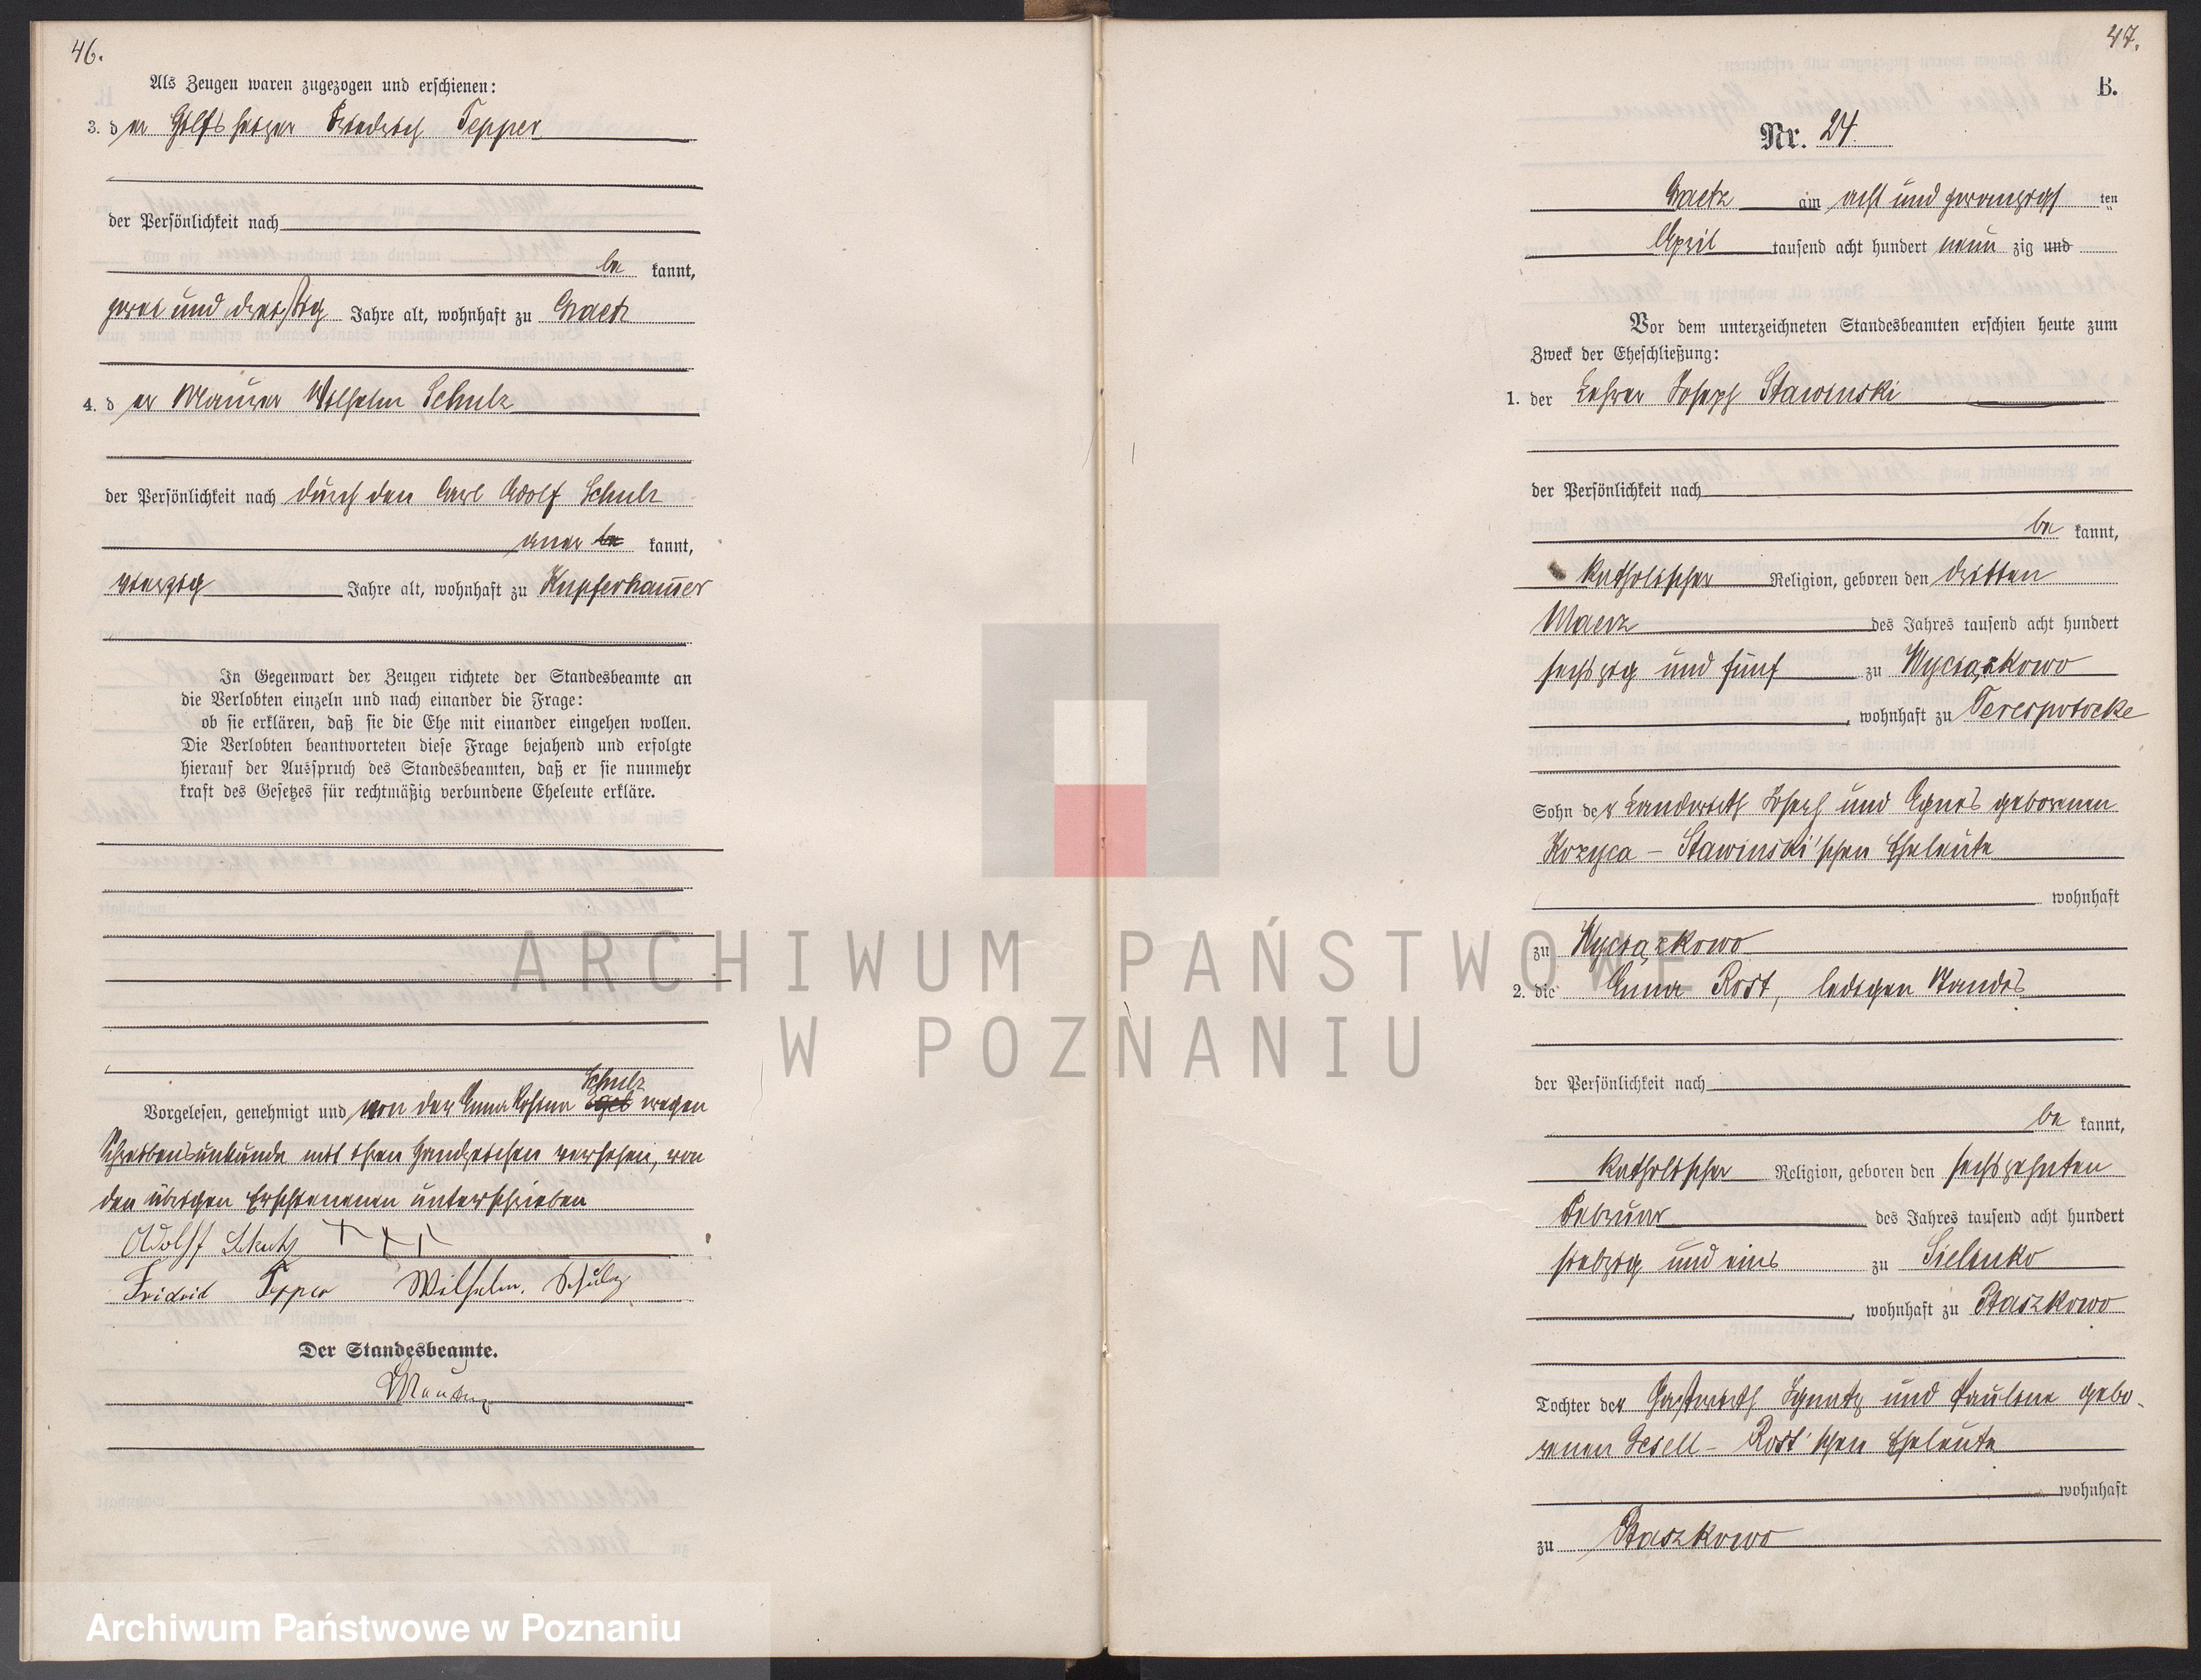 46.
Als Zeugen waren zugezogen und erschienen:
3. der Hilfsheizer Friedrich Tepper
der Persönlichkeit nach
be kannt,
zwei und dreißig Jahre alt, wohnhaft zu Graetz
4. der Maurer Wilhelm Schulz
der Persönlichkeit nach durch den Carl Adolf Schulz
aner be kannt,
vierzig Jahre alt, wohnhaft zu Kupferhamer
In Gegenwart der Zeugen richtete der Standesbeamte an
die Verlobten einzeln und nach einander die Frage:
ob sie erklären, daß sie die Ehe mit einander eingehen wollen.
Die Verlobten beantworteten diese Frage bejahend und erfolgte
hierauf der Ausspruch des Standesbeamten, daß er sie nunmehr
kraft des Gesetzes für rechtmäßig verbundene Eheleute erkläre.
Schulz
Vorgelesen, genehmigt und von der Anna Rosina wegen
Schreibensunkunde mit ihren Handzeichen versehen, von
den übrigen Erschienenen unterschrieben
Adolff Schulz +++
Fridrich Tepper Wilhelm Schulz
Der Standesbeamte.
47.
B.
Nr. 24.
Graetz am acht und zwanzigsten
April tausend acht hundert neun zig und
Vor dem unterzeichneten Standesbeamten erschien heute zum
Zweck der Eheschließung:
1. der Lehrer Joseph Stawinski
der Persönlichkeit nach
be kannt,
katholischer Religion, geboren den dritten
Maerz des Jahres tausend acht hundert
sechszig und fünf zu Wyciązkowo
, wohnhaft zu Terespotocke
Sohn der Landwirth Joseph und Agnes geborenen
Kozyca - Stawinski'schen Eheleute
wohnhaft
zu Wyciązkowo
2. die Anna Rost, ledigen Standes
der Persönlichkeit nach
be kannt,
katholischer Religion, geboren den sechszehnten
Februar des Jahres tausend acht hundert
siebzig und eins zu Sielinko
, wohnhaft zu Ptaszkowo
Tochter der Gastwirth Ignatz und Pauline gebo-
renen Gesell - Rost'schen Eheleute
wohnhaft
zu Ptaszkowo
ARCHIWUM PAŃSTWOWE
W POZNANIU
Archiwum Państwowe w Poznaniu